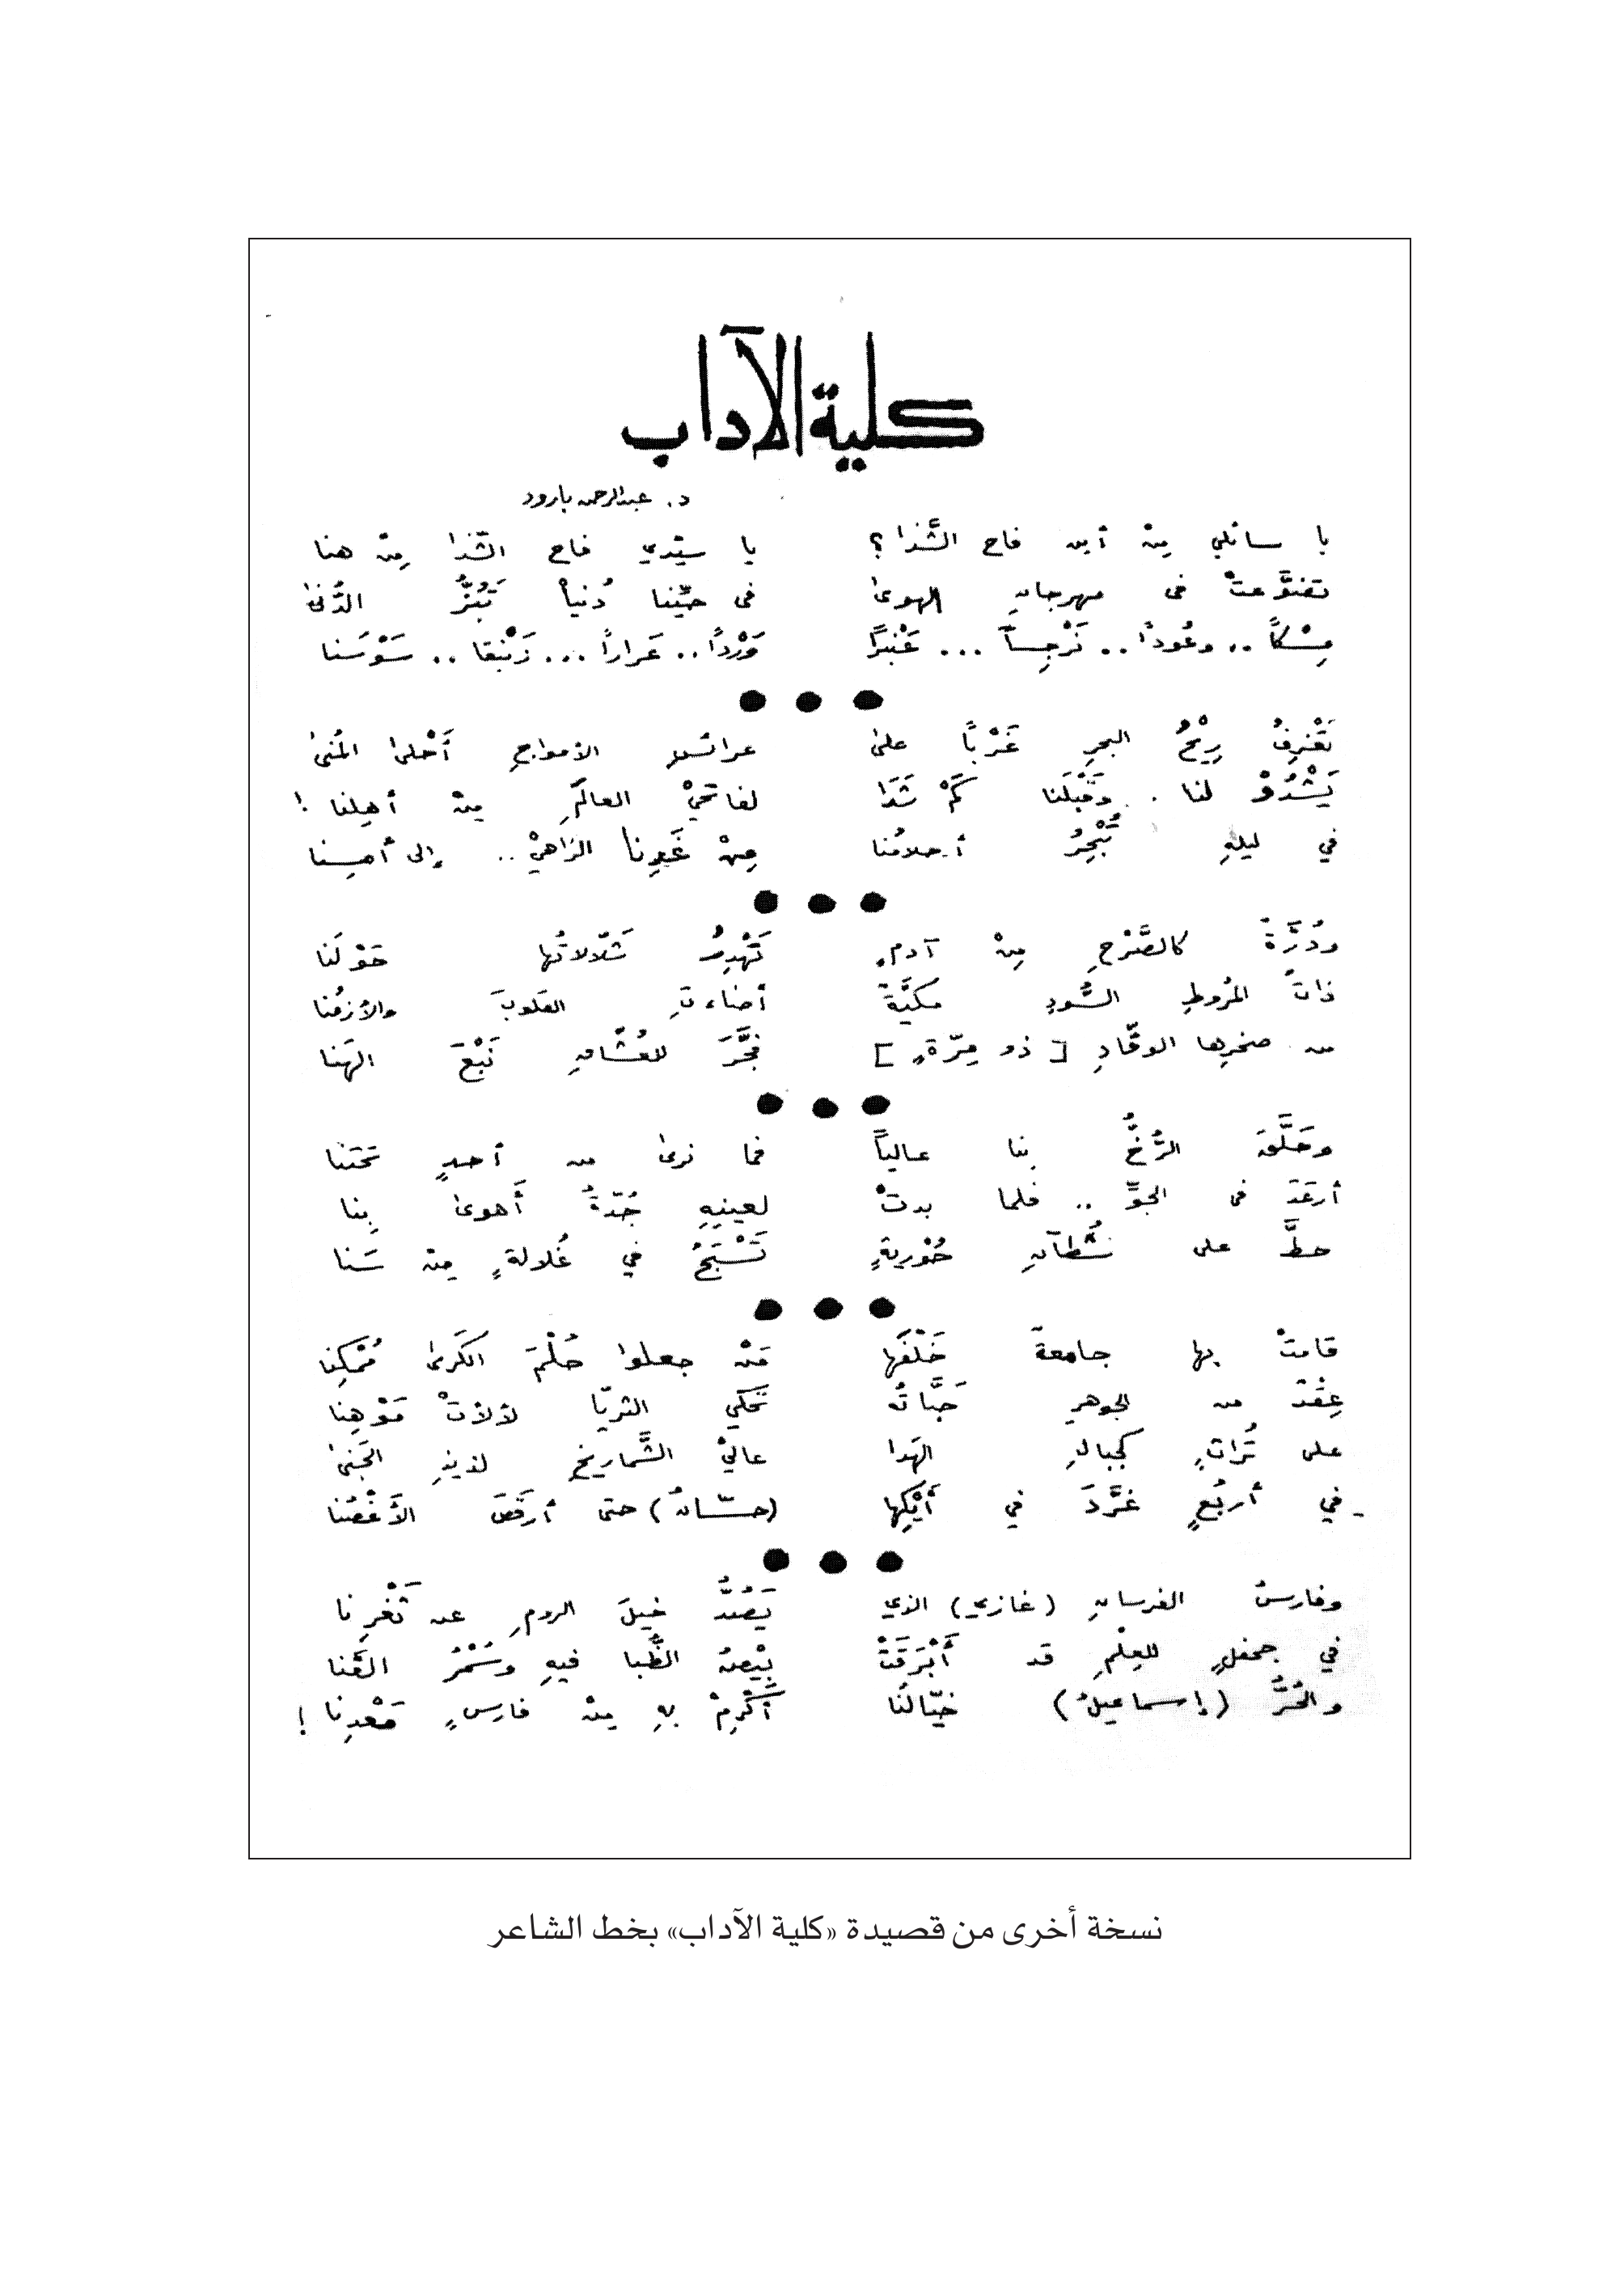 كلية الآداب
د. عبدالرحمن بارود
يا سائلي مِنْ أين فاح الشَّذا؟ يا سيّدي فاح الشّذا مِنْ هنا
تضوَّعتْ في مهرجانِ الهوىٰ في حيّنا دُنيا تَبُزُّ الدُّنىٰ
مِسْكاً .. وعُوداً .. نَرْجِساً ... عَنْبَراً وَرْداً .. عَراراً ... زَنْبقا .. سَوْسَنا
تَعْزِفُ رِيْحُ البحرِ غَرْباً علىٰ عرائسِ الأمواجِ أَحْلىٰ المُنىٰ
يَشْدُوْ لنا .. وَقَبْلَنا كَمْ شَدَا لفاتحيْ العالَمِ مِنْ أهلِنا !
في ليلةٍ تُبْحِرُ أحلامُنا مِنْ غَدِنا الزّاهيْ .. إلى أمسِنا
ودُرَّةٌ كالصَّرْحِ مِنْ آدمٍ تَهْدِرُ شَلّالاتُها حَوْلَنا
ذاتُ المُروطِ السُّودِ مكيَّةٌ أضاءتِ القلوبَ والأزمُنا
من صخرِها الوقّادِ [ذو مِرّةٍ] فجَّرَ للعُشّاقِ نَبْعَ الهَنا
وحَلَّقَ الرُّخُّ بِنا عالياً فما نرىٰ من أحدٍ تحتَنا
أرعَدَ في الجوِّ .. فلما بدتْ لعينِهِ جُدّةُ أَهوىٰ بِنا
حطَّ على شُطآنِ حُوْريةٍ تَسْبَحُ في غُلالةٍ مِنْ سَنا
قامتْ بها جامعةٌ خَلْفَها مَنْ جعلوا حُلْمَ الكَرىٰ مُمْكِنا
عِقْدٌ من الجوهرِ حَبَّاتُهُ تحكي الثريّا لألأتْ مَوْهِنا
على تُراثٍ كجبالِ الهَدا عاليْ الشَّماريخِ لذيذِ الجَنىٰ
في أربُعٍ غرَّدَ في أَيْكِها (حسّانُ) حتى أرقَصَ الأَغْصُنا
وفارسُ الفرسانِ (غازي) الذي يَصُدُّ خيلَ الرومِ عن ثَغْرِنا
في جحفلٍ للعِلْمِ قد أَبْرَقَتْ بِيْضُ الظُّبا فيهِ وسُمْرُ القَنا
والحُرُّ (إسماعيلُ) خيّالُنا أَكْرِمْ بهِ مِنْ فارسٍ مَعْدِنا !
نسخة أخرى من قصيدة «كلية الآداب» بخط الشاعر